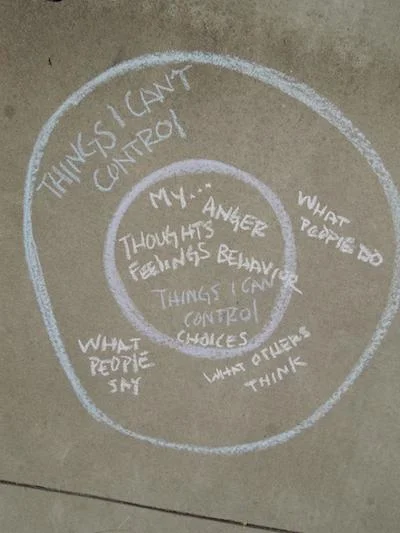 THINGS I CAN'T
CONTROL
MY...
ANGER
THOUGHTS
FEELINGS BEHAVIOR
THINGS I CAN
CONTROL
CHOICES
WHAT
PEOPLE DO
WHAT
PEOPLE
SAY
WHAT OTHERS
THINK